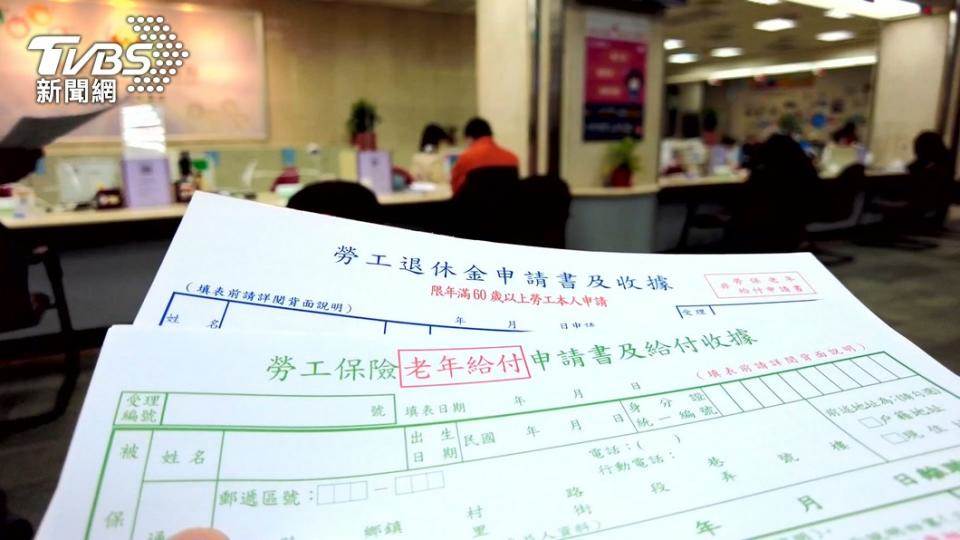 TVBS
新聞網
勞工退休金申請書及收據
限年滿60歲以上勞工本人申請
非勞保老年
給付申請書
(填表前請詳閱背面說明)
年 月 日申請
受理
姓 名
勞工保險老年給付申請書及給付收據
(填表前請詳閱背面說明)
受理
編號
號
填表日期 年 月 日
身分證
統一編號
被
保
姓名
出生
日期
民國 年 月 日
戶籍地址
現住
郵遞區號:
電話:( )
行動電話:
鄉鎮 村 路 段 巷 弄 號 樓
里 街
年 月 日